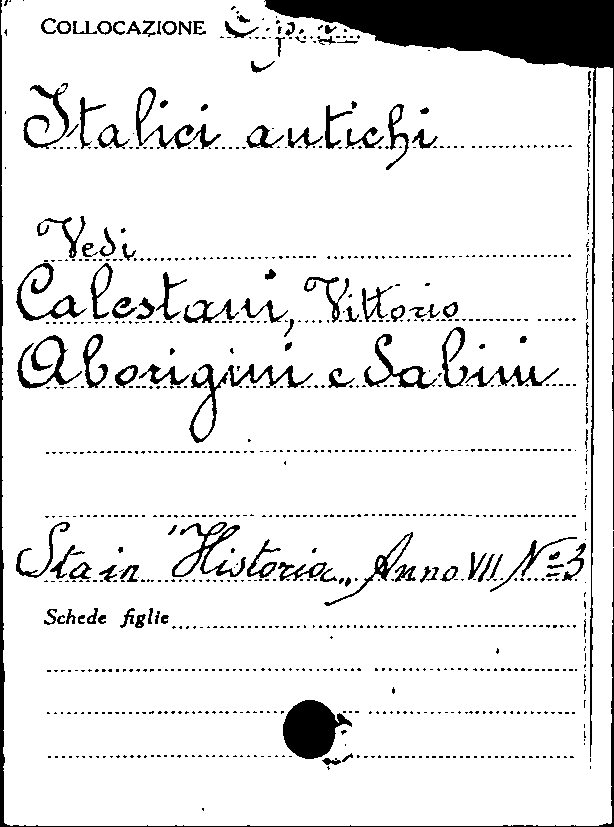 COLLOCAZIONE
Italici antichi
Vedi
Calestani, Vittorio
Aborigini e Sabini
Sta in "Historia" Anno VII Nº 3
Schede figlie